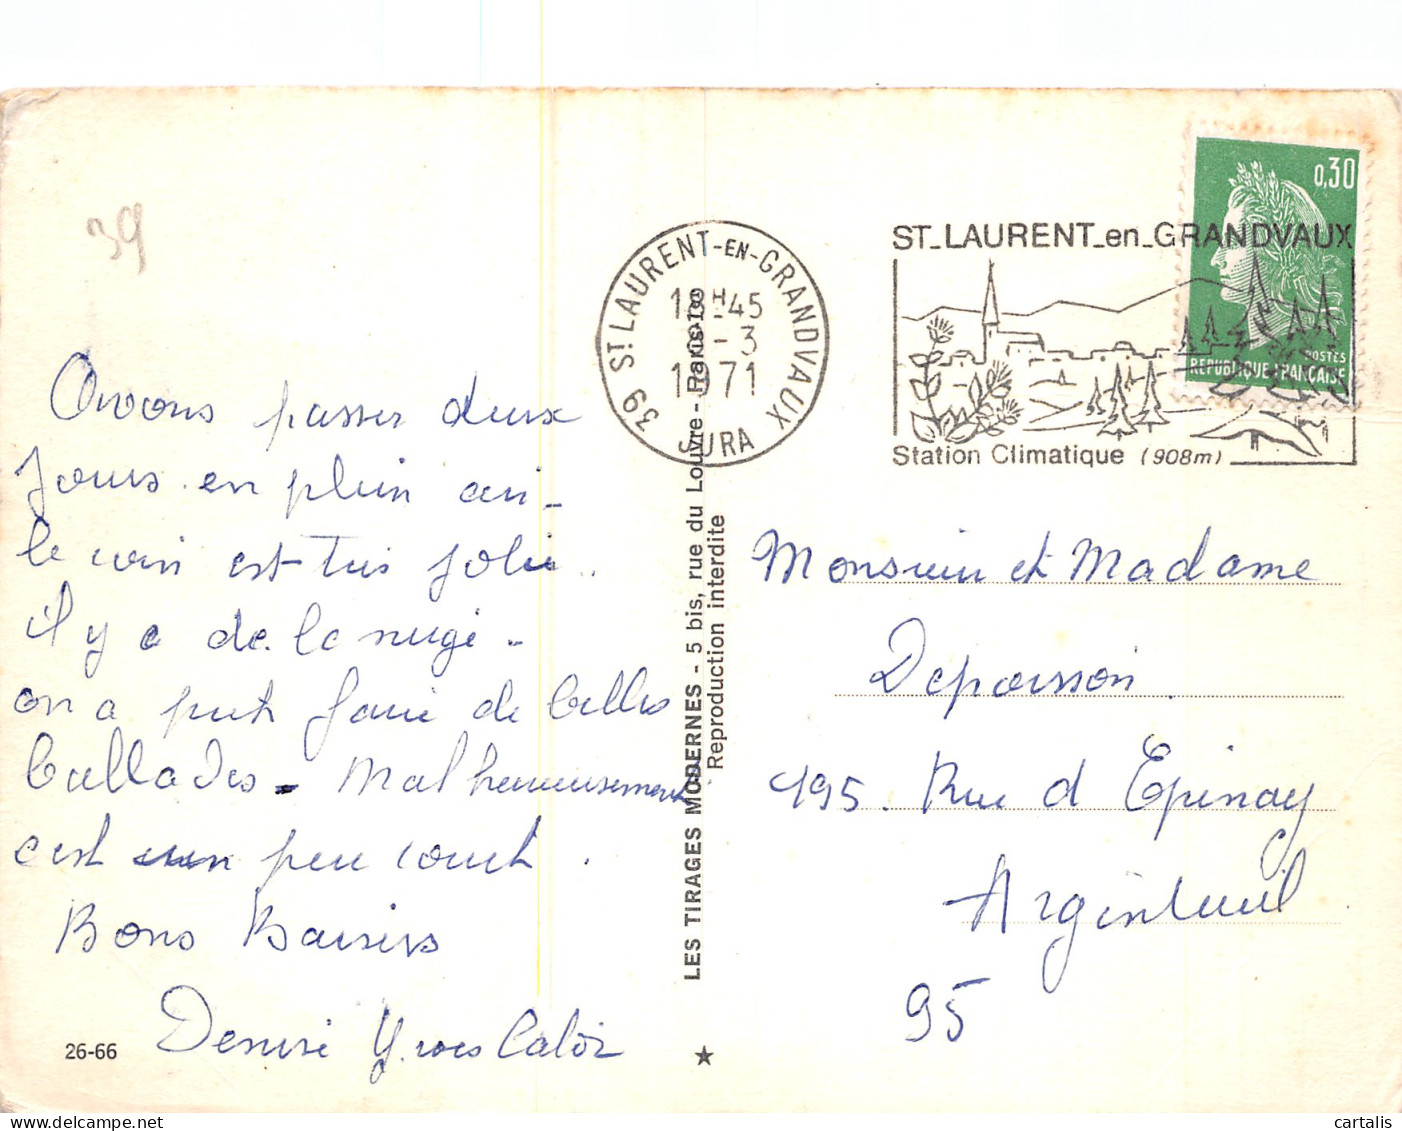 39
Avons passer deux
Jours en plein air_
le coin est très jolie.
il y a de la neige -
on a put faire de belles
ballades - Malheureusement
c'est un peu court.
Bons Baisers
Denise Yves
26-66
LES TIRAGES MODERNES - 5 bis, rue du Louvre - Paris
Reproduction interdite
39 ST LAURENT-EN-GRANDVAUX
18H45
-3
1971
JURA
ST_LAURENT_en_GRANDVAUX
Station Climatique (908m)
0,30
POSTES
REPUBLIQUE FRANÇAISE
Monsieur et Madame
Depoisson
195. Rue d Epinay
Argenteuil
95
cartalis